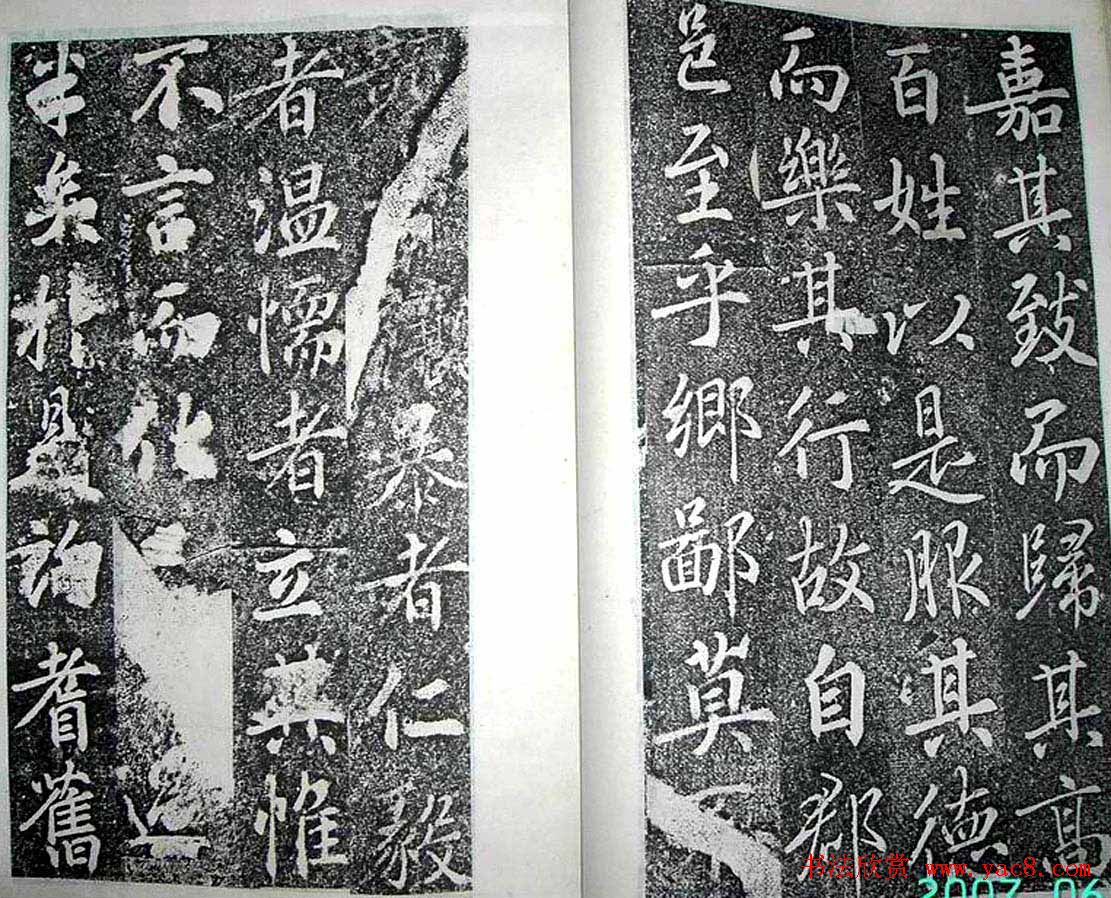 嘉其致而歸其高
百姓以是服其德
而樂其行故自郡
邑至乎鄉鄙莫
暴者仁毅
者温懦者立無惟
不言而化
半矣於是詢耆舊
书法欣赏 www.yac8.com
2007 06